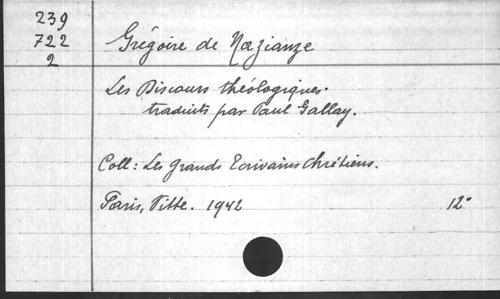 239
722
2
Grégoire de Nazianze
Les Discours théologiques.
traduits par Paul Gallay.
Coll: Les grands Ecrivains Chrétiens.
Paris, Vitte. 1942
12°